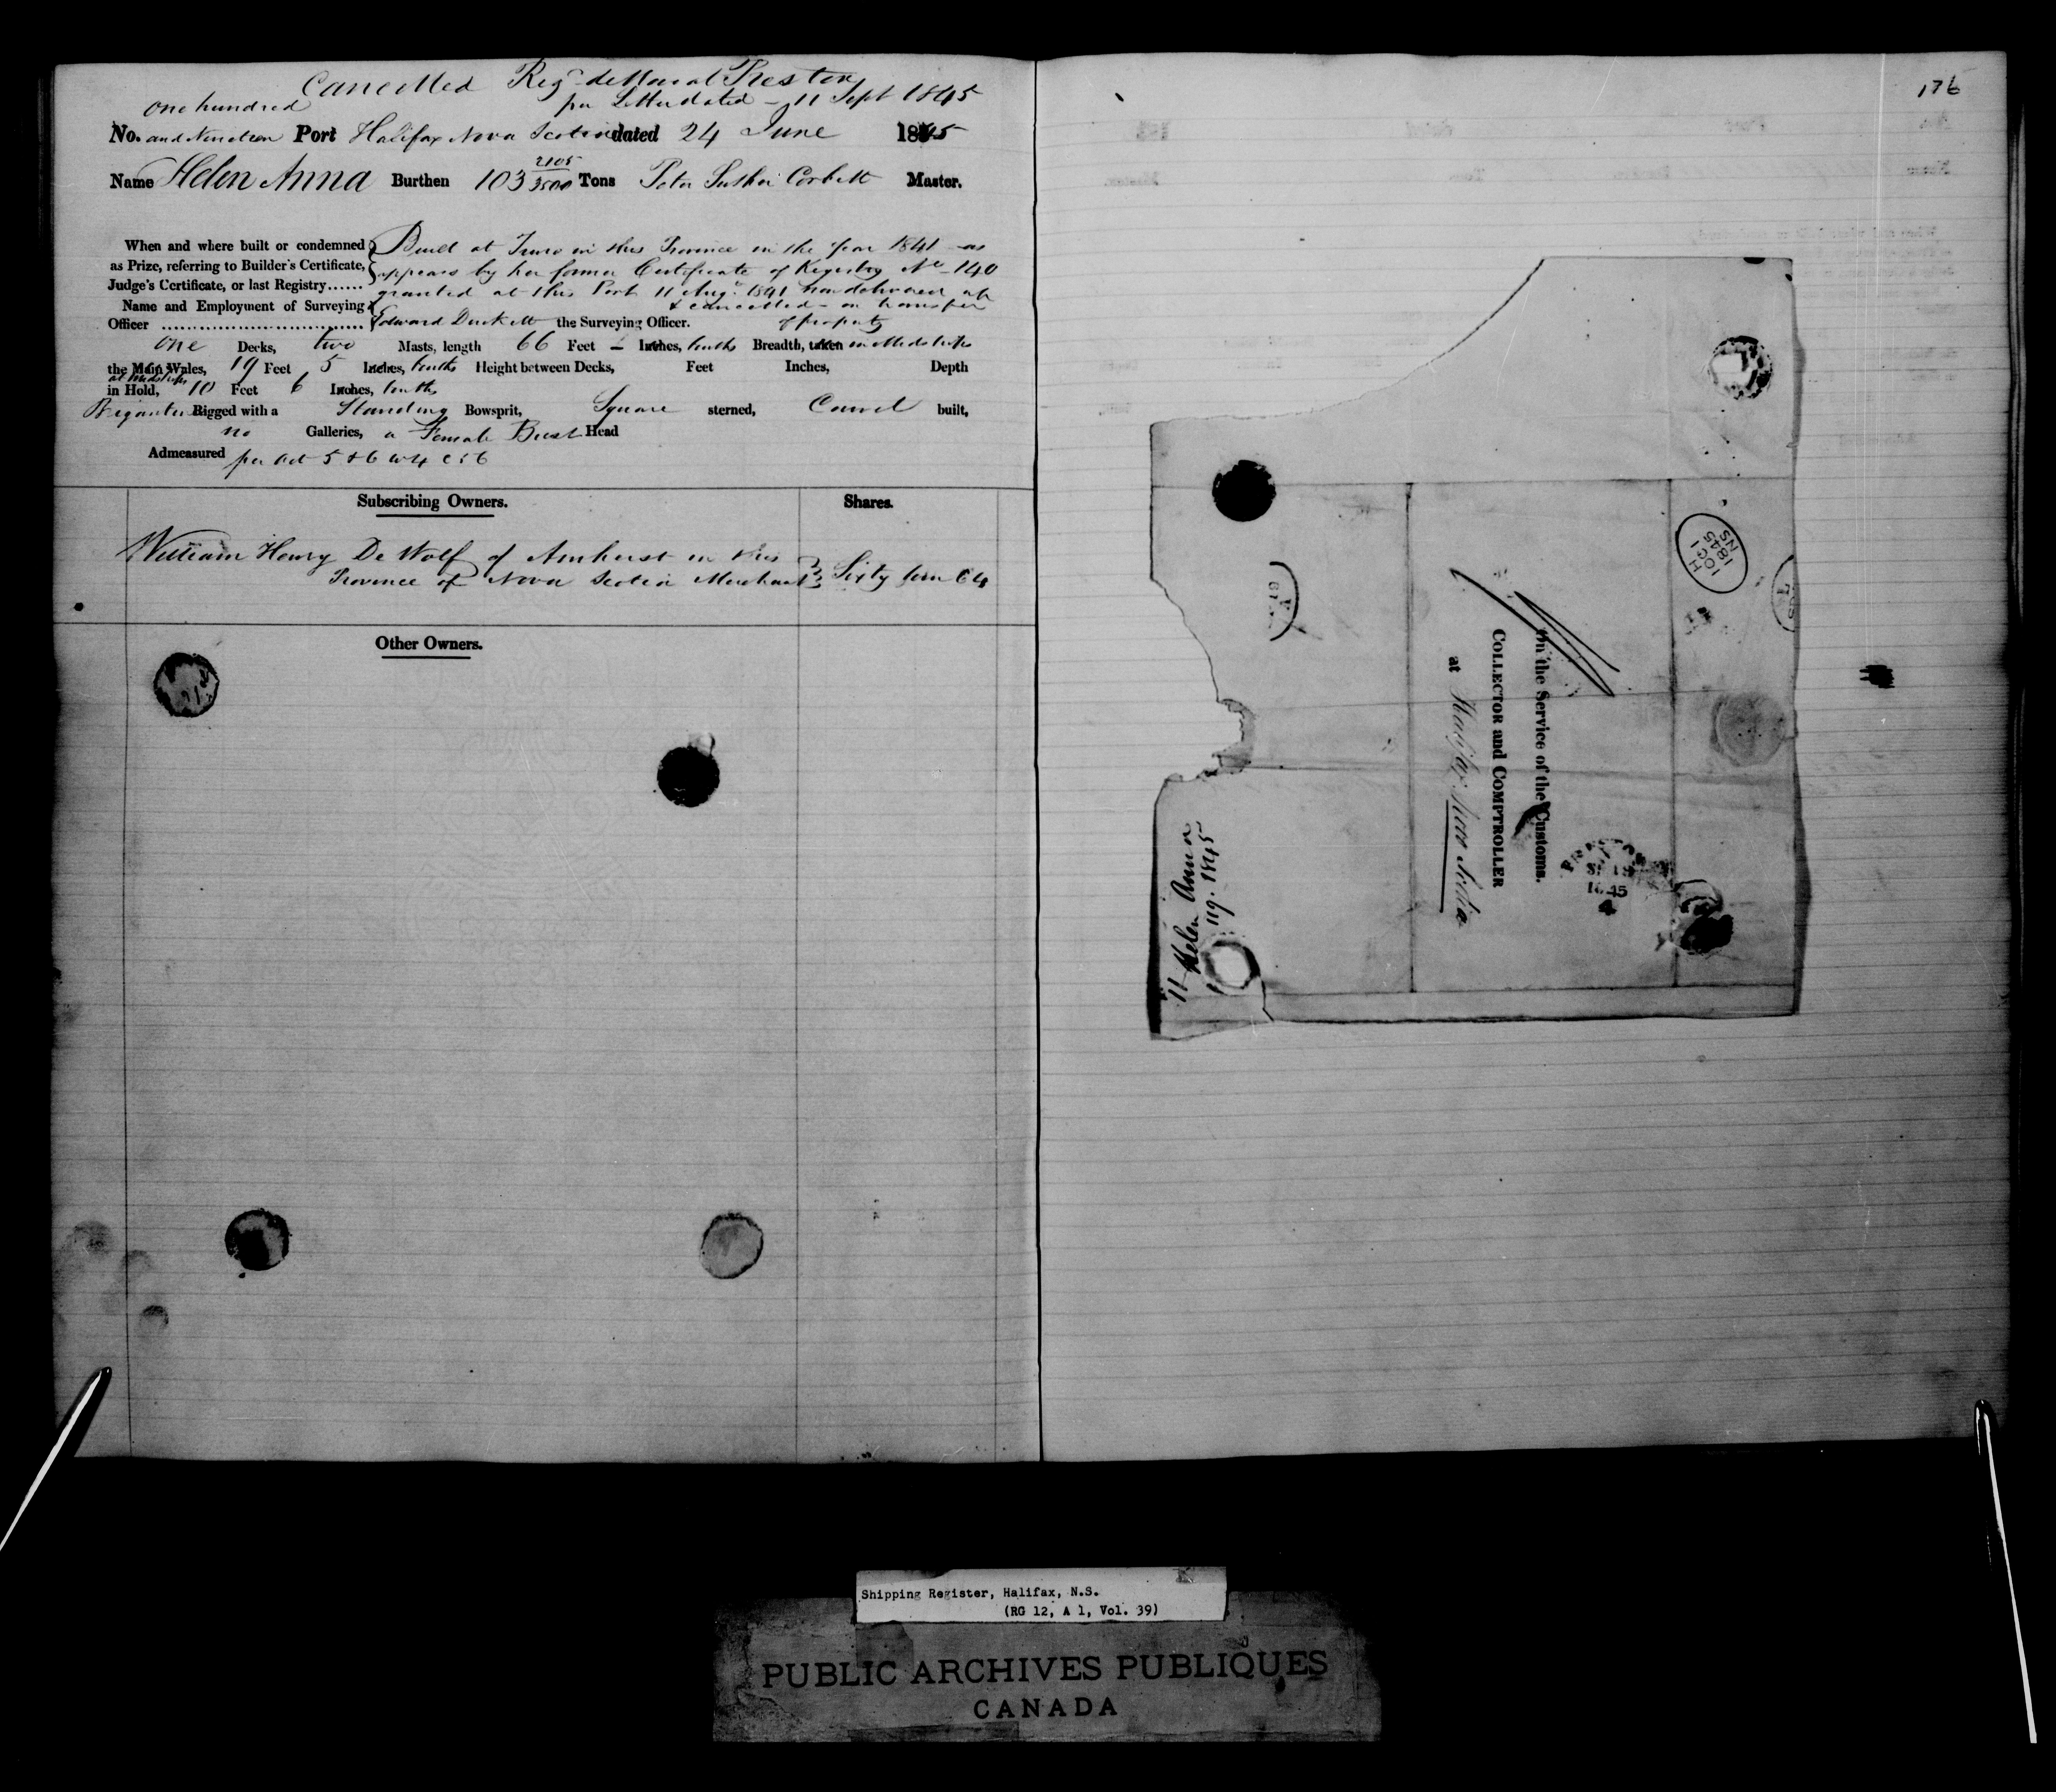 Cancelled Reg de Novo at Preston
per Letter dated - 11 Sept 1845
one hundred
No. and Nineteen Port Halifax Nova Scotia dated 24 June 1845
Name Helen Anna Burthen 103 2105/3500 Tons Peter Corbett Master.
When and where built or condemned as Prize, referring to Builder's Certificate, Judge's Certificate, or last Registry......
Built at Truro in this Province in the year 1841 as
appears by her former Certificate of Registry No 140
granted at this Port 11 Augt 1841 now delivered up
& cancelled - on transfer
of property
Name and Employment of Surveying Officer
Edward Duckett the Surveying Officer.
one Decks, two Masts, length 66 Feet - Inches, tenths Breadth, taken in Midships
the Main Wales, 19 Feet 5 Inches, tenths Height between Decks, Feet Inches, Depth
at Midships
in Hold, 10 Feet 6 Inches, tenths
Brigantine Rigged with a Standing Bowsprit, Square sterned, Carvel built,
no Galleries, a Female Bust Head
Admeasured per Act 5 & 6 W 4 C 56
Subscribing Owners. Shares.
William Henry De Wolf of Amherst in this
Province of Nova Scotia Merchant Sixty four 64
Other Owners.
176
On the Service of the Customs.
COLLECTOR and COMPTROLLER
at Halifax Nova Scotia
Helen Anna
119. 1845
H
10 OC 1
1845
NS
PRESTON
1845
Shipping Register, Halifax, N.S.
(RG 12, A 1, Vol. 39)
PUBLIC ARCHIVES PUBLIQUES
CANADA